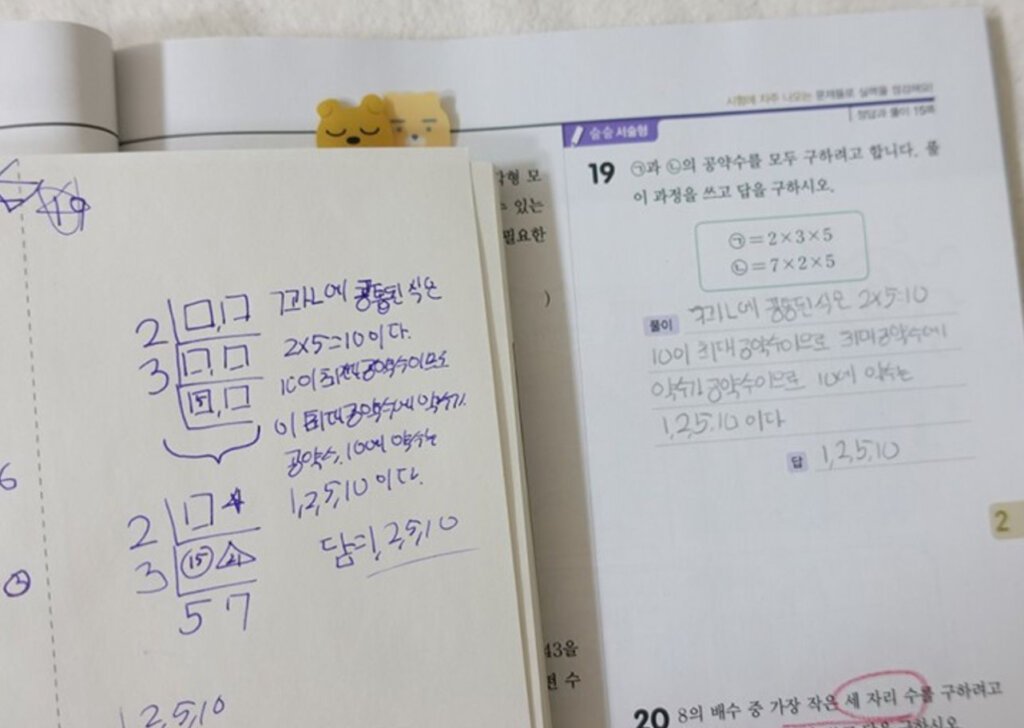 19
2 □, □
3 □, □
15, □
ㄱ과ㄴ에 공통된 식은
2×5=10 이다.
10이 최대공약수이므로
이 최대공약수에 약수가
공약수, 10에 약수는
1,2,5,10 이다.
답=1,2,5,10
2
3 15 21
5 7
6
1,2,5,10
각형 모
수 있는
필요한
)
43을
변 수
시험에 자주 나오는 문제들로 실력을 점검해요!
정답과 풀이 15쪽
술술 서술형
19 ㉠과 ㉡의 공약수를 모두 구하려고 합니다. 풀
이 과정을 쓰고 답을 구하시오.
㉠=2×3×5
㉡=7×2×5
풀이 ㄱ과ㄴ에 공통된 식은 2×5=10
10이 최대공약수이므로 최대공약수에
약수가 공약수이므로 10에 약수는
1,2,5,10 이다
답 1,2,5,10
2
20 8의 배수 중 가장 작은 세 자리 수를 구하려고